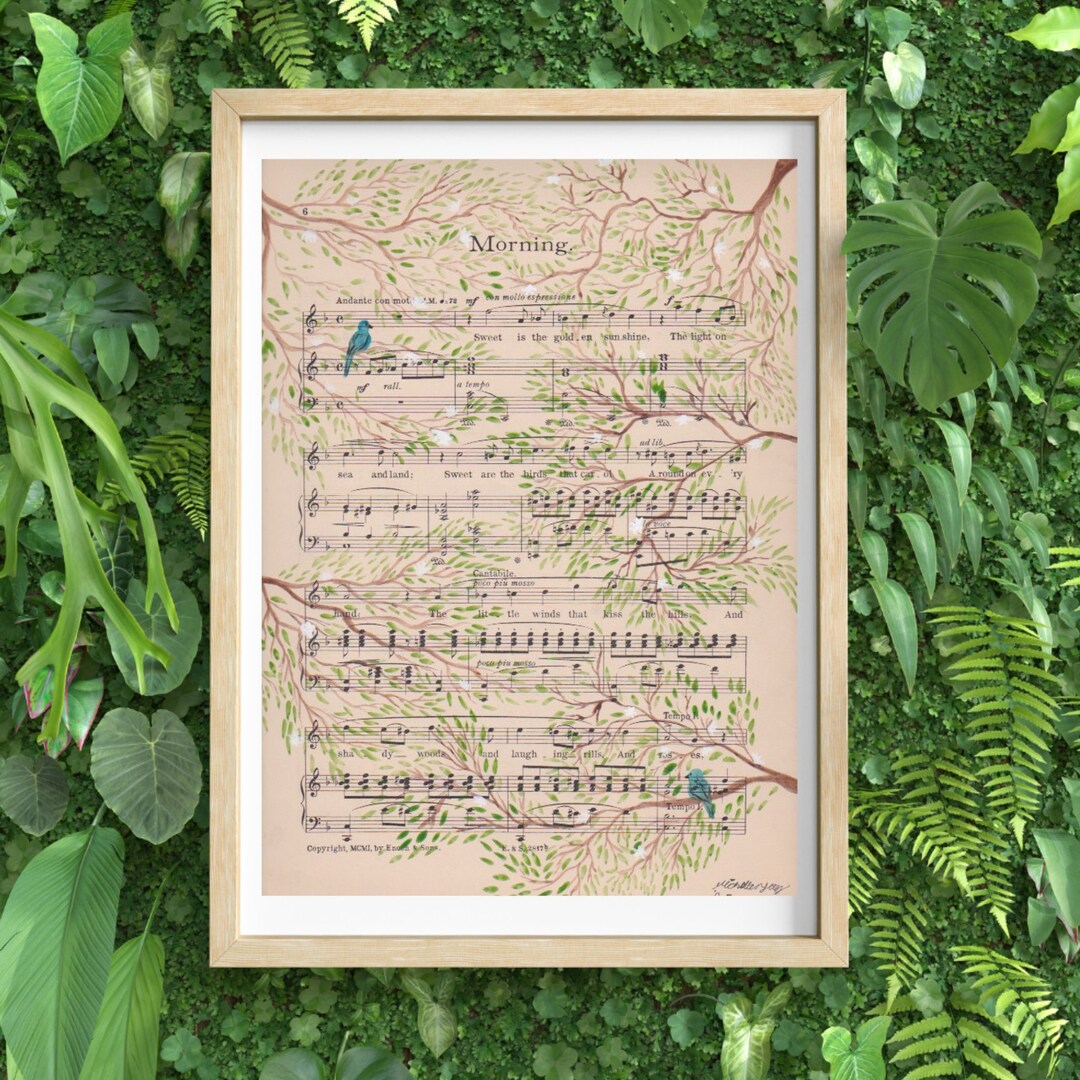 6
Morning.
Andante con mot M. 72 mf con molto espressione f
Sweet is the gold_en sunshine, The light on
mf rall. a tempo
Ped. Ped. Ped.
ad lib.
sea and land; Sweet are the birds that car_ol A_round on ev_'ry
poco
Ped.
Cantabile.
poco piu mosso
hand; The lit_tle winds that kiss the hills, And
poco piu mosso
Tempo I.
sha_dy woods and laugh_ing rills, And ros_es,
Tempo I.
Copyright, MCMI, by Enoch & Sons. E. & S. 2817